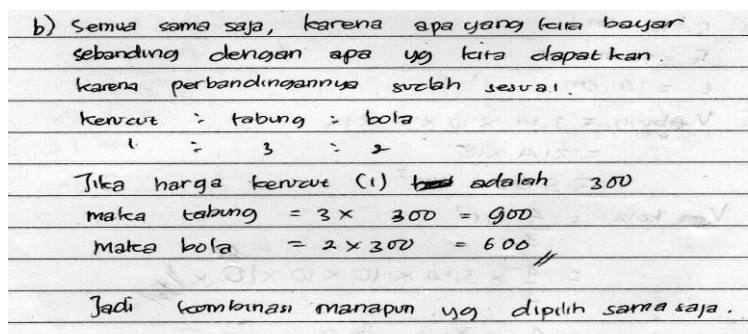 b) Semua sama saja, karena apa yang kita bayar
sebanding dengan apa yg kita dapat kan.
karena perbandingannya sudah sesuai.
kerucut : tabung : bola
1 : 3 : 2
Jika harga kerucut (1) adalah 300
maka tabung = 3 x 300 = 900
maka bola = 2 x 300 = 600 //
Jadi kombinasi manapun yg dipilih sama saja.